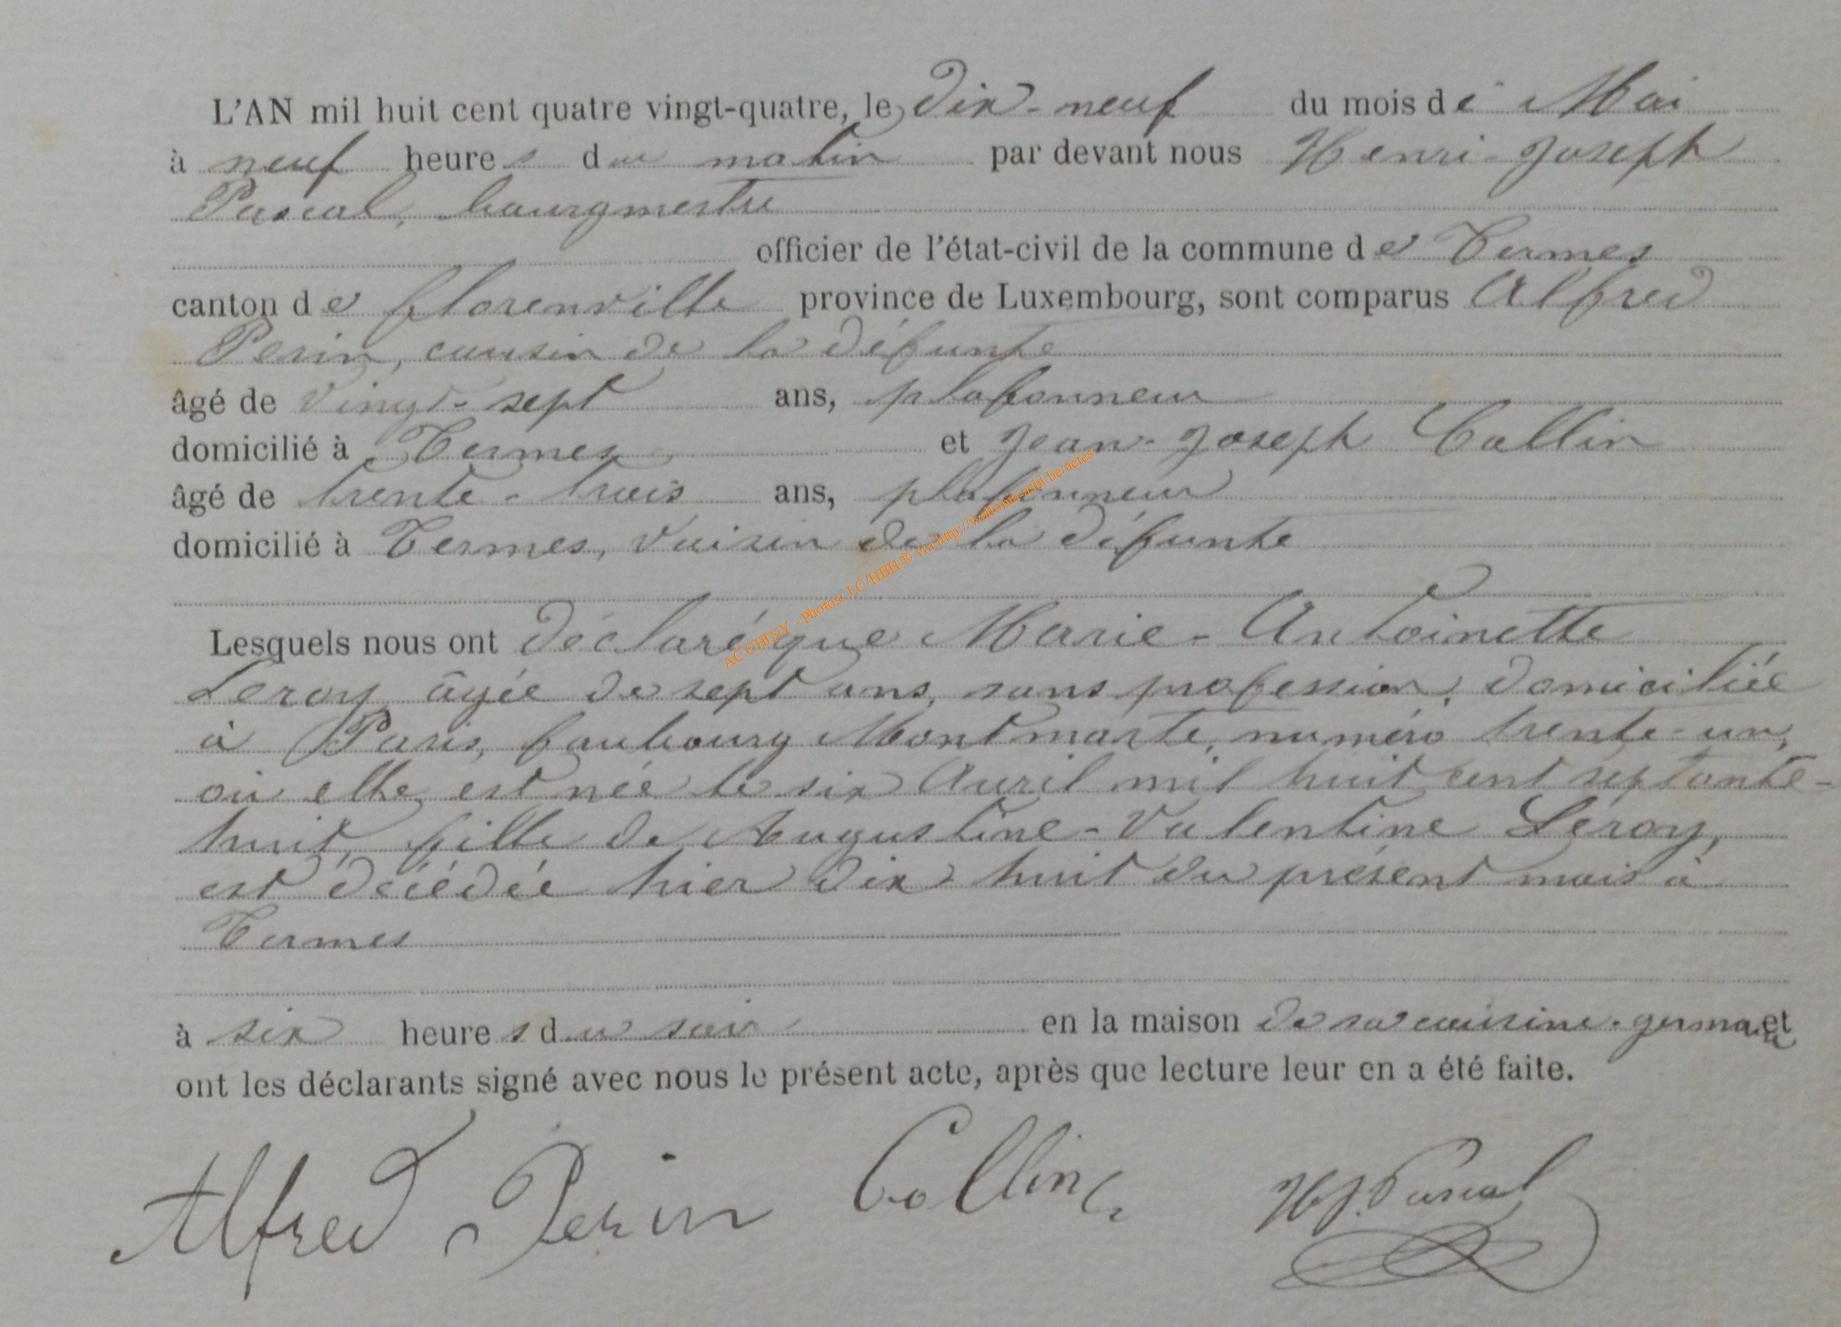 L'AN mil huit cent quatre vingt-quatre, le dix-neuf du mois de Mai
à neuf heures du matin par devant nous Henri-Joseph
Pascal, bourgmestre
officier de l'état-civil de la commune de Termes
canton de Florenville province de Luxembourg, sont comparus Alfred
Perin, cousin de la défunte
âgé de vingt-sept ans, plafonneur
domicilié à Termes et Jean-Joseph Collin
âgé de trente-trois ans, plafonneur
domicilié à Termes, voisin de la défunte
Lesquels nous ont déclaré que Marie-Antoinette
Leroy âgée de sept ans, sans profession, domiciliée
à Paris, faubourg Montmarte, numéro trente-un,
où elle est née le six Avril mil huit cent septante-
huit, fille de Augustine-Valentine Leroy,
est décédée hier dix huit du présent mois à
Termes
à six heures du soir en la maison de sa cousine-germaine et
ont les déclarants signé avec nous le présent acte, après que lecture leur en a été faite.
Alfred Perin Collin HJ. Pascal
AC CHINY - Photos: J.C/HBH ® via http://wallonia-asbl.be/actes